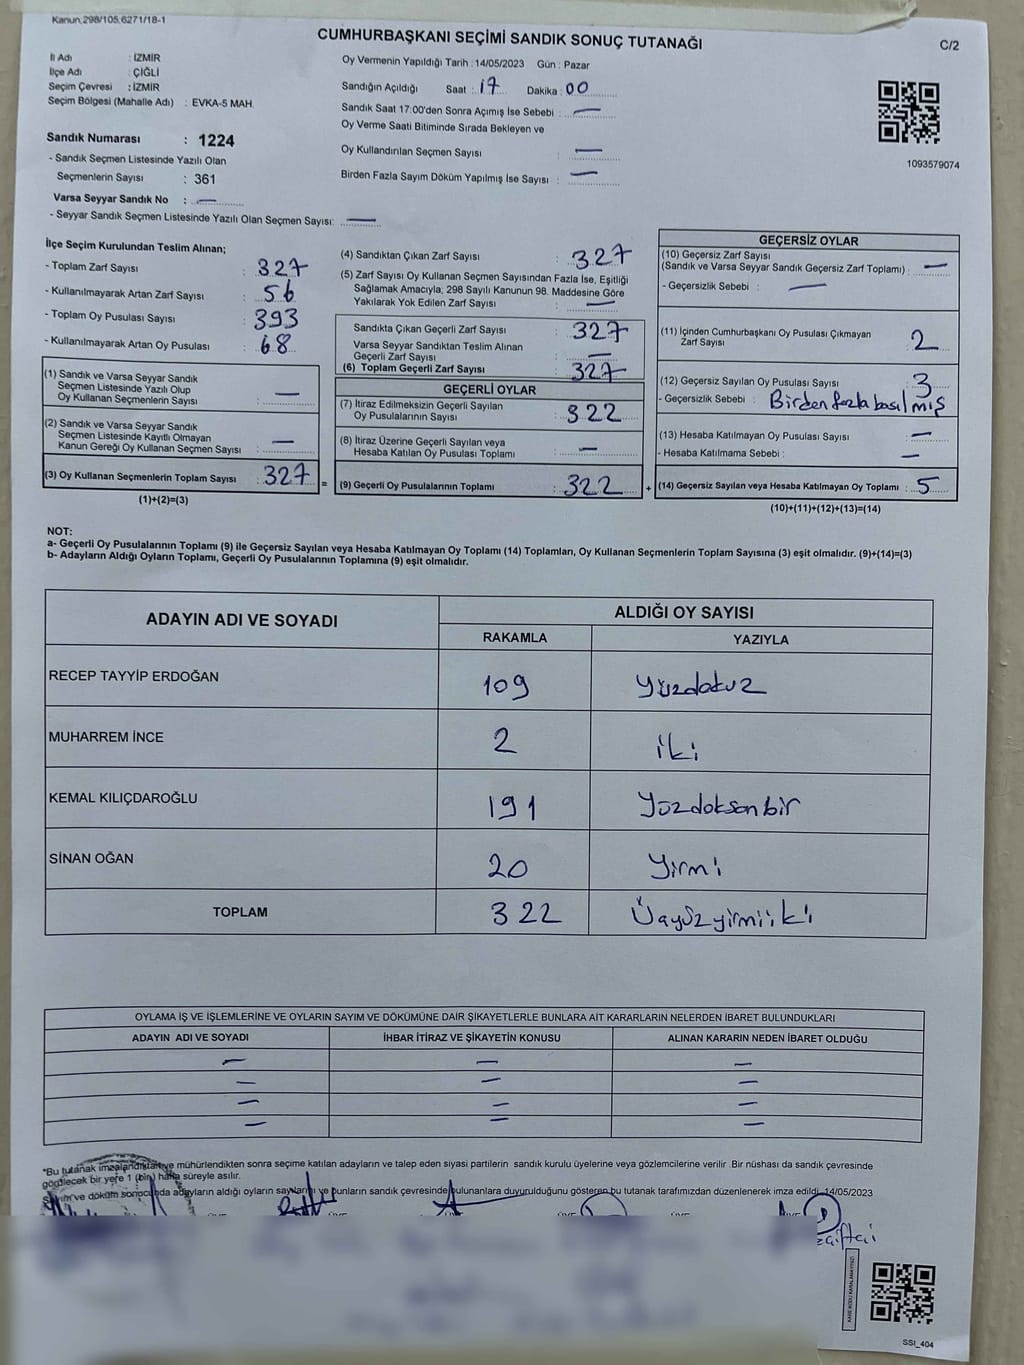 Kanun:298/105,6271/18-1
CUMHURBAŞKANI SEÇİMİ SANDIK SONUÇ TUTANAĞI
C/2
İl Adı : İZMİR
İlçe Adı : ÇİĞLİ
Seçim Çevresi : İZMİR
Seçim Bölgesi (Mahalle Adı) : EVKA-5 MAH.
Sandık Numarası : 1224
- Sandık Seçmen Listesinde Yazılı Olan
Seçmenlerin Sayısı : 361
Varsa Seyyar Sandık No : —
- Seyyar Sandık Seçmen Listesinde Yazılı Olan Seçmen Sayısı: —
Oy Vermenin Yapıldığı Tarih : 14/05/2023 Gün : Pazar
Sandığın Açıldığı Saat : 17 Dakika : 00
Sandık Saat 17:00'den Sonra Açımış İse Sebebi : —
Oy Verme Saati Bitiminde Sırada Bekleyen ve
Oy Kullandırılan Seçmen Sayısı : —
Birden Fazla Sayım Döküm Yapılmış İse Sayısı : —
1093579074
İlçe Seçim Kurulundan Teslim Alınan;
- Toplam Zarf Sayısı : 327
- Kullanılmayarak Artan Zarf Sayısı : 56
- Toplam Oy Pusulası Sayısı : 393
- Kullanılmayarak Artan Oy Pusulası : 68
(1) Sandık ve Varsa Seyyar Sandık
Seçmen Listesinde Yazılı Olup
Oy Kullanan Seçmenlerin Sayısı : —
(2) Sandık ve Varsa Seyyar Sandık
Seçmen Listesinde Kayıtlı Olmayan
Kanun Gereği Oy Kullanan Seçmen Sayısı : —
(3) Oy Kullanan Seçmenlerin Toplam Sayısı : 327
(1)+(2)=(3)
=
(4) Sandıktan Çıkan Zarf Sayısı : 327
(5) Zarf Sayısı Oy Kullanan Seçmen Sayısından Fazla İse, Eşitliği
Sağlamak Amacıyla; 298 Sayılı Kanunun 98. Maddesine Göre
Yakılarak Yok Edilen Zarf Sayısı : —
Sandıkta Çıkan Geçerli Zarf Sayısı : 327
Varsa Seyyar Sandıktan Teslim Alınan
Geçerli Zarf Sayısı : —
(6) Toplam Geçerli Zarf Sayısı : 327
GEÇERLİ OYLAR
(7) İtiraz Edilmeksizin Geçerli Sayılan
Oy Pusulalarının Sayısı : 322
(8) İtiraz Üzerine Geçerli Sayılan veya
Hesaba Katılan Oy Pusulası Toplamı : —
(9) Geçerli Oy Pusulalarının Toplamı : 322
+
GEÇERSİZ OYLAR
(10) Geçersiz Zarf Sayısı
(Sandık ve Varsa Seyyar Sandık Geçersiz Zarf Toplamı) : —
- Geçersizlik Sebebi : —
(11) İçinden Cumhurbaşkanı Oy Pusulası Çıkmayan
Zarf Sayısı : 2
(12) Geçersiz Sayılan Oy Pusulası Sayısı : 3
- Geçersizlik Sebebi : Birden fazla basılmış
(13) Hesaba Katılmayan Oy Pusulası Sayısı : —
- Hesaba Katılmama Sebebi : —
(14) Geçersiz Sayılan veya Hesaba Katılmayan Oy Toplamı : 5
(10)+(11)+(12)+(13)=(14)
NOT:
a- Geçerli Oy Pusulalarının Toplamı (9) ile Geçersiz Sayılan veya Hesaba Katılmayan Oy Toplamı (14) Toplamları, Oy Kullanan Seçmenlerin Toplam Sayısına (3) eşit olmalıdır. (9)+(14)=(3)
b- Adayların Aldığı Oyların Toplamı, Geçerli Oy Pusulalarının Toplamına (9) eşit olmalıdır.
ADAYIN ADI VE SOYADI ALDIĞI OY SAYISI
RAKAMLA YAZIYLA
RECEP TAYYİP ERDOĞAN 109 Yüzdokuz
MUHARREM İNCE 2 İki
KEMAL KILIÇDAROĞLU 191 Yüzdoksanbir
SİNAN OĞAN 20 Yirmi
TOPLAM 322 Üçyüzyirmiiki
OYLAMA İŞ VE İŞLEMLERİNE VE OYLARIN SAYIM VE DÖKÜMÜNE DAİR ŞİKAYETLERLE BUNLARA AİT KARARLARIN NELERDEN İBARET BULUNDUKLARI
ADAYIN ADI VE SOYADI İHBAR İTİRAZ VE ŞİKAYETİN KONUSU ALINAN KARARIN NEDEN İBARET OLDUĞU
— — —
— — —
— — —
— — —
*Bu tutanak imzalandıktan ve mühürlendikten sonra seçime katılan adayların ve talep eden siyasi partilerin sandık kurulu üyelerine veya gözlemcilerine verilir. Bir nüshası da sandık çevresinde
görülecek bir yere 1 (bir) hafta süreyle asılır.
Sayım ve döküm sonucunda adayların aldığı oyların sayılarını ve bunların sandık çevresinde bulunanlara duyurulduğunu gösteren bu tutanak tarafımızdan düzenlenerek imza edildi. 14/05/2023
SSİ_404